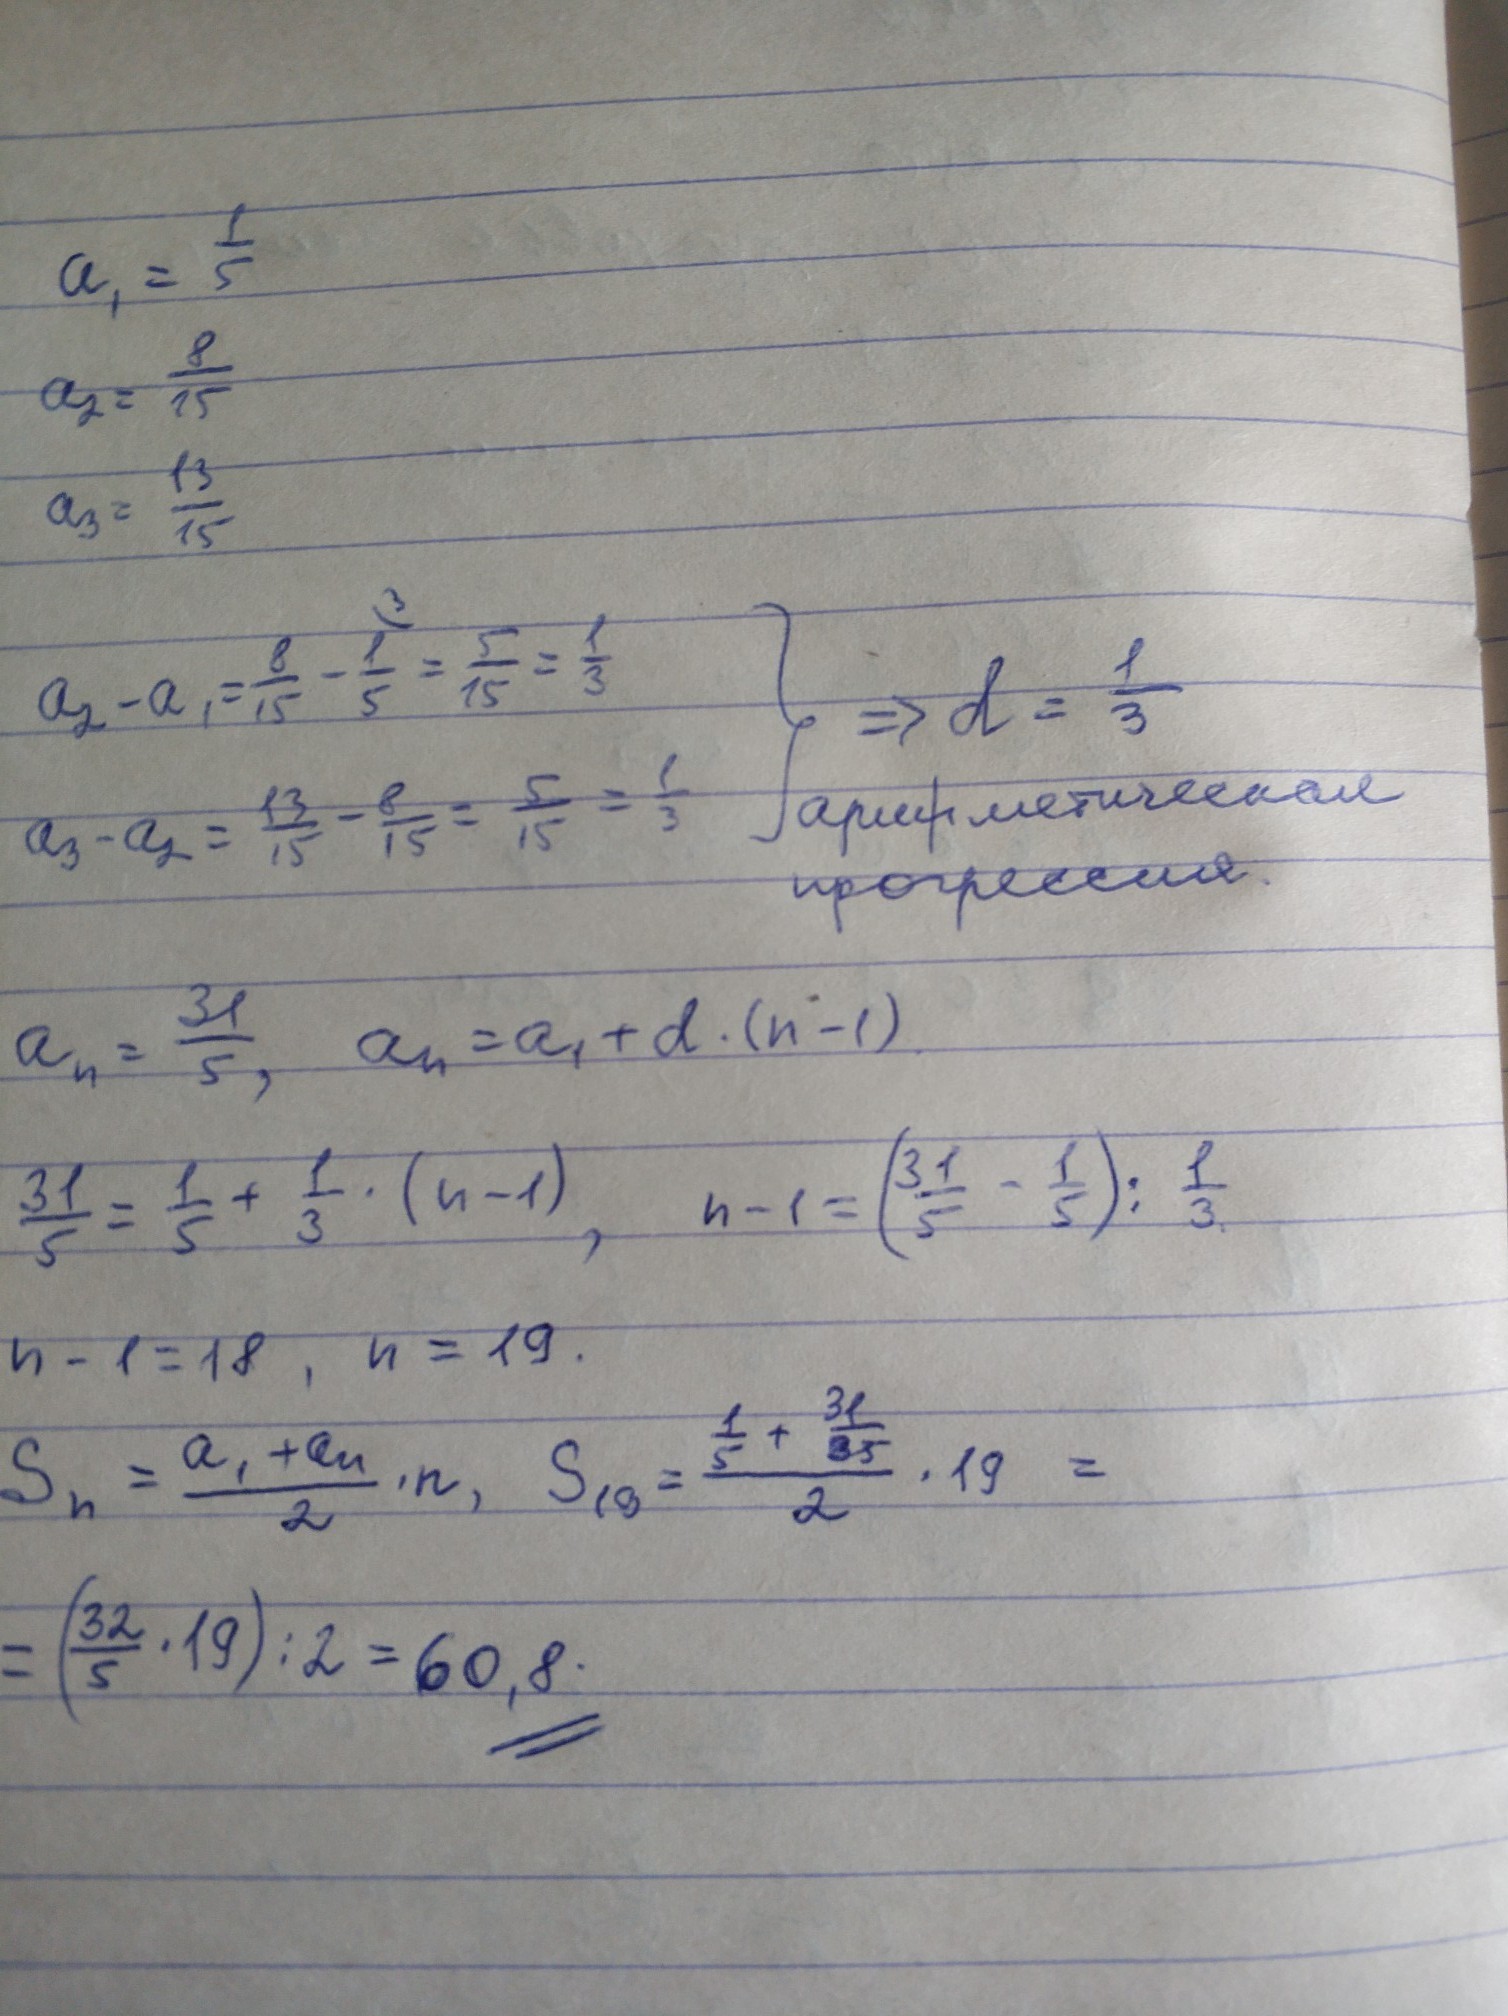 a₁ = 1/5
a₂ = 8/15
a₃ = 13/15
a₂ - a₁ = 8/15 - 1/5 ⁽³ = 5/15 = 1/3
a₃ - a₂ = 13/15 - 8/15 = 5/15 = 1/3
} => d = 1/3
арифметическая
прогрессия.
aₙ = 31/5, aₙ = a₁ + d · (n - 1)
31/5 = 1/5 + 1/3 · (n - 1), n - 1 = (31/5 - 1/5) : 1/3
n - 1 = 18, n = 19.
Sₙ = (a₁ + aₙ)/2 · n, S₁₉ = (1/5 + 31/5)/2 · 19 =
= (32/5 · 19) : 2 = 60,8.